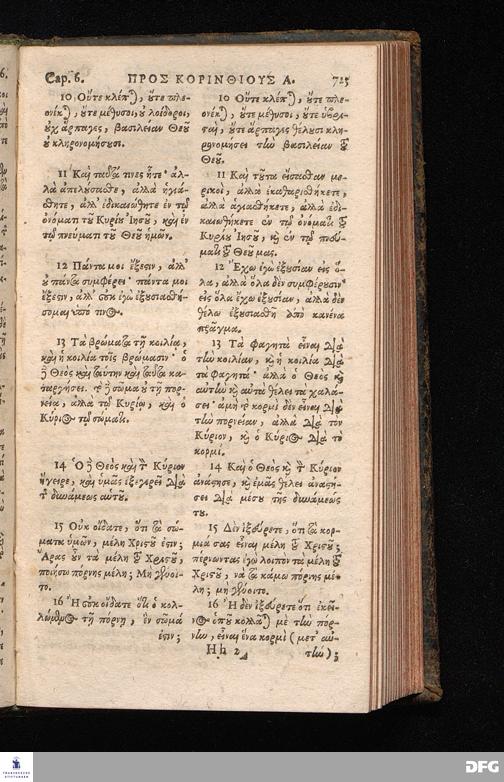 Cap. 6. ΠΡΟΣ ΚΟΡΙΝΘΙΟΥΣ Α. 725
10 Οὔτε κλέπται, οὔτε πλε-
ονέκται, οὔτε μέθυσοι, οὐ λοίδοροι,
οὐχ ἅρπαγες, βασιλείαν Θεοῦ
οὐ κληρονομήσουσι.
11 Καὶ ταῦτά τινες ἦτε· ἀλ-
λὰ ἀπελούσασθε, ἀλλὰ ἡγιά-
σθητε, ἀλλ' ἐδικαιώθητε ἐν τῷ
ὀνόματι τοῦ Κυρίου Ἰησοῦ, καὶ ἐν
τῷ πνεύματι τοῦ Θεοῦ ἡμῶν.
12 Πάντα μοι ἔξεστιν, ἀλλ'
οὐ πάντα συμφέρει· πάντα μοι
ἔξεστιν, ἀλλ' οὐκ ἐγὼ ἐξουσιασθή-
σομαι ὑπό τινος.
13 Τὰ βρώματα τῇ κοιλίᾳ,
καὶ ἡ κοιλία τοῖς βρώμασιν· ὁ
δὲ Θεὸς καὶ ταύτην καὶ ταῦτα κα-
ταργήσει. τὸ δὲ σῶμα οὐ τῇ πορ-
νείᾳ, ἀλλὰ τῷ Κυρίῳ, καὶ ὁ
Κύριος τῷ σώματι.
14 Ὁ δὲ Θεὸς καὶ τὸν Κύριον
ἤγειρε, καὶ ὑμᾶς ἐξεγερεῖ διὰ
τῆς δυνάμεως αὑτοῦ.
15 Οὐκ οἴδατε, ὅτι τὰ σώ-
ματα ὑμῶν, μέλη Χριστοῦ ἐστιν;
Ἄρας οὖν τὰ μέλη τοῦ Χριστοῦ,
ποιήσω πόρνης μέλη; Μὴ γένοι-
το.
16 Ἢ οὐκ οἴδατε ὅτι ὁ κολ-
λώμενος τῇ πόρνῃ, ἓν σῶμά
ἐστιν;
10 Οὔτε κλέπται, οὔτε πλε-
ονέκται, οὔτε μέθυσοι, οὔτε ὑβρι-
σταὶ, οὔτε ἅρπαγες θέλουσι κλη-
ρονομήσει τὴν βασιλείαν τοῦ
Θεοῦ.
11 Καὶ τοῦτα εἴσασθαν με-
ρικοὶ, ἀλλὰ ἐκαθαρισθήκετε,
ἀλλὰ ἁγιασθήκετε, ἀλλὰ ἐδι-
καιωθήκετε ἐν τῷ ὀνόματι τοῦ
Κυρίου Ἰησοῦ, καὶ ἐν τῷ πνεύ-
ματι τοῦ Θεοῦ μας.
12 Ἔχω ἐγὼ ἐξουσίαν εἰς ὅ-
λα, ἀλλὰ ὅλα δὲν συμφέρουσιν·
εἰς ὅλα ἔχω ἐξουσίαν, ἀλλὰ δὲν
θέλω ἐξουσιασθῆ ἀπὸ κανένα
πρᾶγμα.
13 Τὰ φαγητὰ εἶναι διὰ
τὴν κοιλίαν, καὶ ἡ κοιλία διὰ
τὰ φαγητά· ἀλλὰ ὁ Θεὸς καὶ
αὐτὴν καὶ αὐτὰ θέλει τὰ χαλά-
σει· ἀμὴ τὸ κορμὶ δὲν εἶναι διὰ
τὴν πορνείαν, ἀλλὰ διὰ τὸν
Κύριον, καὶ ὁ Κύριος διὰ τὸ
κορμί.
14 Καὶ ὁ Θεὸς καὶ τὸν Κύριον
ἀνάστησε, καὶ ἐμᾶς θέλει ἀναστή-
σει διὰ μέσου τῆς δυνάμεώς
του.
15 Δὲν ἐξεύρετε, ὅτι τὰ κορ-
μιά σας εἶναι μέλη τοῦ Χριστοῦ;
πέρνωντας ἐγὼ λοιπὸν τὰ μέλη τοῦ
Χριστοῦ, νὰ τὰ κάμω πόρνης μέ-
λη; μὴ γένοιτο.
16 Ἢ δὲν ἐξεύρετε ὅτι ἐκεῖ-
νος ὁποῦ κολλᾶται μὲ τὴν πόρ-
νην, εἶναι ἕνα κορμὶ (μετ' αὐ-
Hh 2 τήν);
FRANCKESCHE
STIFTUNGEN
DFG